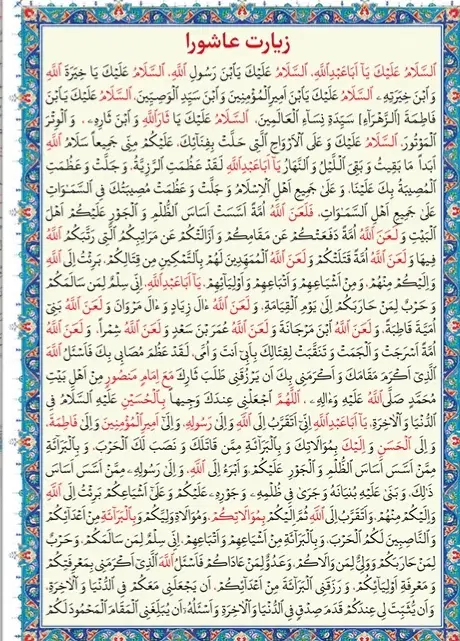 زیارت عاشورا
اَلسَّلامُ عَلَیْكَ یٰا اَباعَبْدِاللّٰهِ، اَلسَّلامُ عَلَیْكَ یَابْنَ رَسُولِ اللّٰهِ، اَلسَّلامُ عَلَیْكَ یا خِیَرَةَ اللّٰهِ
وَ ابْنَ خِیَرَتِهِ، اَلسَّلامُ عَلَیْكَ یَابْنَ اَمیرِالْمُؤْمِنینَ وَ ابْنَ سَیِّدِ الْوَصِیّینَ، اَلسَّلامُ عَلَیْكَ یَابْنَ
فاطِمَةَ [الزَّهْرٰاءِ] سَیِّدَةِ نِسٰاءِ الْعالَمینَ، اَلسَّلامُ عَلَیْكَ یا ثارَاللّٰهِ وَ ابْنَ ثارِهِ، وَ الْوِتْرَ
الْمَوْتُورَ، اَلسَّلامُ عَلَیْكَ وَ عَلَى الْاَرْواحِ الَّتی حَلَّتْ بِفِنٰائِكَ، عَلَیْكُمْ مِنّی جَمیعاً سَلامُ اللّٰهِ
اَبَداً ما بَقیتُ وَ بَقِیَ اللَّیْلُ وَ النَّهارُ یٰا اَباعَبْدِاللّٰهِ لَقَدْ عَظُمَتِ الرَّزِیَّةُ، وَ جَلَّتْ وَ عَظُمَتِ
الْمُصیبَةُ بِكَ عَلَیْنا، وَ عَلىٰ جَمیعِ اَهْلِ الْاِسْلامِ وَ جَلَّتْ وَ عَظُمَتْ مُصیبَتُكَ فِی السَّمٰوٰاتِ
عَلىٰ جَمیعِ اَهْلِ السَّمٰوٰاتِ، فَلَعَنَ اللّٰهُ اُمَّةً اَسَّسَتْ اَساسَ الظُّلْمِ وَ الْجَوْرِ عَلَیْكُمْ اَهْلَ
الْبَیْتِ وَ لَعَنَ اللّٰهُ اُمَّةً دَفَعَتْكُمْ عَنْ مَقامِكُمْ وَ اَزالَتْكُمْ عَنْ مَراتِبِكُمُ الَّتی رَتَّبَكُمُ اللّٰهُ
فیها وَ لَعَنَ اللّٰهُ اُمَّةً قَتَلَتْكُمْ وَ لَعَنَ اللّٰهُ الْمُمَهِّدینَ لَهُمْ بِالتَّمْكینِ مِنْ قِتالِكُمْ، بَرِئْتُ اِلَى اللّٰهِ
وَ اِلَیْكُمْ مِنْهُمْ، وَ مِنْ اَشْیاعِهِمْ وَ اَتْباعِهِمْ وَ اَوْلِیٰائِهِمْ، یٰا اَباعَبْدِاللّٰهِ، اِنّی سِلْمٌ لِمَنْ سالَمَكُمْ
وَ حَرْبٌ لِمَنْ حارَبَكُمْ اِلىٰ یَوْمِ الْقِیامَةِ، وَ لَعَنَ اللّٰهُ ءالَ زِیادٍ وَ ءالَ مَرْوانَ وَ لَعَنَ اللّٰهُ بَنی
اُمَیَّةَ قاطِبَةً، وَ لَعَنَ اللّٰهُ ابْنَ مَرْجانَةَ وَ لَعَنَ اللّٰهُ عُمَرَ بْنَ سَعْدٍ وَ لَعَنَ اللّٰهُ شِمْراً، وَ لَعَنَ اللّٰهُ
اُمَّةً اَسْرَجَتْ وَ اَلْجَمَتْ وَ تَنَقَّبَتْ لِقِتالِكَ بِاَبی اَنْتَ وَ اُمّی، لَقَدْ عَظُمَ مُصابی بِكَ فَاَسْئَلُ اللّٰهَ
الَّذی اَكْرَمَ مَقامَكَ وَ اَكْرَمَنی بِكَ اَنْ یَرْزُقَنی طَلَبَ ثارِكَ مَعَ اِمامٍ مَنْصُورٍ مِنْ اَهْلِ بَیْتِ
مُحَمَّدٍ صَلَّى اللّٰهُ عَلَیْهِ وَءالِهِ، اَللّٰهُمَّ اجْعَلْنی عِنْدَكَ وَجیهاً بِالْحُسَیْنِ عَلَیْهِ السَّلامُ فِی
الدُّنْیا وَ الْاٰخِرَةِ، یٰا اَباعَبْدِاللّٰهِ اِنّی اَتَقَرَّبُ اِلَى اللّٰهِ وَ اِلىٰ رَسُولِهِ، وَ اِلىٰ اَمیرِالْمُؤْمِنینَ وَ اِلىٰ فاطِمَةَ،
وَ اِلَى الْحَسَنِ وَ اِلَیْكَ بِمُوالاتِكَ وَ بِالْبَرٰائَةِ مِمَّنْ قاتَلَكَ وَ نَصَبَ لَكَ الْحَرْبَ، وَ بِالْبَرٰائَةِ
مِمَّنْ اَسَّسَ اَساسَ الظُّلْمِ وَ الْجَوْرِ عَلَیْكُمْ، وَ اَبْرَءُ اِلَى اللّٰهِ، وَ اِلىٰ رَسُولِهِ، مِمَّنْ اَسَّسَ اَساسَ
ذٰلِكَ، وَ بَنىٰ عَلَیْهِ بُنْیانَهُ وَ جَرىٰ فی ظُلْمِهِ، وَ جَوْرِهِ، عَلَیْكُمْ وَ عَلىٰ اَشْیاعِكُمْ بَرِئْتُ اِلَى اللّٰهِ
وَ اِلَیْكُمْ مِنْهُمْ، وَ اَتَقَرَّبُ اِلَى اللّٰهِ ثُمَّ اِلَیْكُمْ بِمُوالاتِكُمْ، وَ مُوالاةِ وَلِیِّكُمْ وَ بِالْبَرٰائَةِ مِنْ اَعْدٰائِكُمْ
وَ النّاصِبینَ لَكُمُ الْحَرْبَ، وَ بِالْبَرٰائَةِ مِنْ اَشْیاعِهِمْ وَ اَتْباعِهِمْ، اِنّی سِلْمٌ لِمَنْ سالَمَكُمْ، وَ حَرْبٌ
لِمَنْ حارَبَكُمْ وَ وَلِیٌّ لِمَنْ والاكُمْ، وَ عَدُوٌّ لِمَنْ عاداكُمْ فَاَسْئَلُ اللّٰهَ الَّذی اَكْرَمَنی بِمَعْرِفَتِكُمْ
وَ مَعْرِفَةِ اَوْلِیٰائِكُمْ، وَ رَزَقَنِی الْبَرٰائَةَ مِنْ اَعْدٰائِكُمْ، اَنْ یَجْعَلَنی مَعَكُمْ فِی الدُّنْیا وَ الْاٰخِرَةِ،
وَ اَنْ یُثَبِّتَ لی عِنْدَكُمْ قَدَمَ صِدْقٍ فِی الدُّنْیا وَ الْاٰخِرَةِ وَ اَسْئَلُهُ اَنْ یُبَلِّغَنِی الْمَقامَ الْمَحْمُودَ لَكُمْ